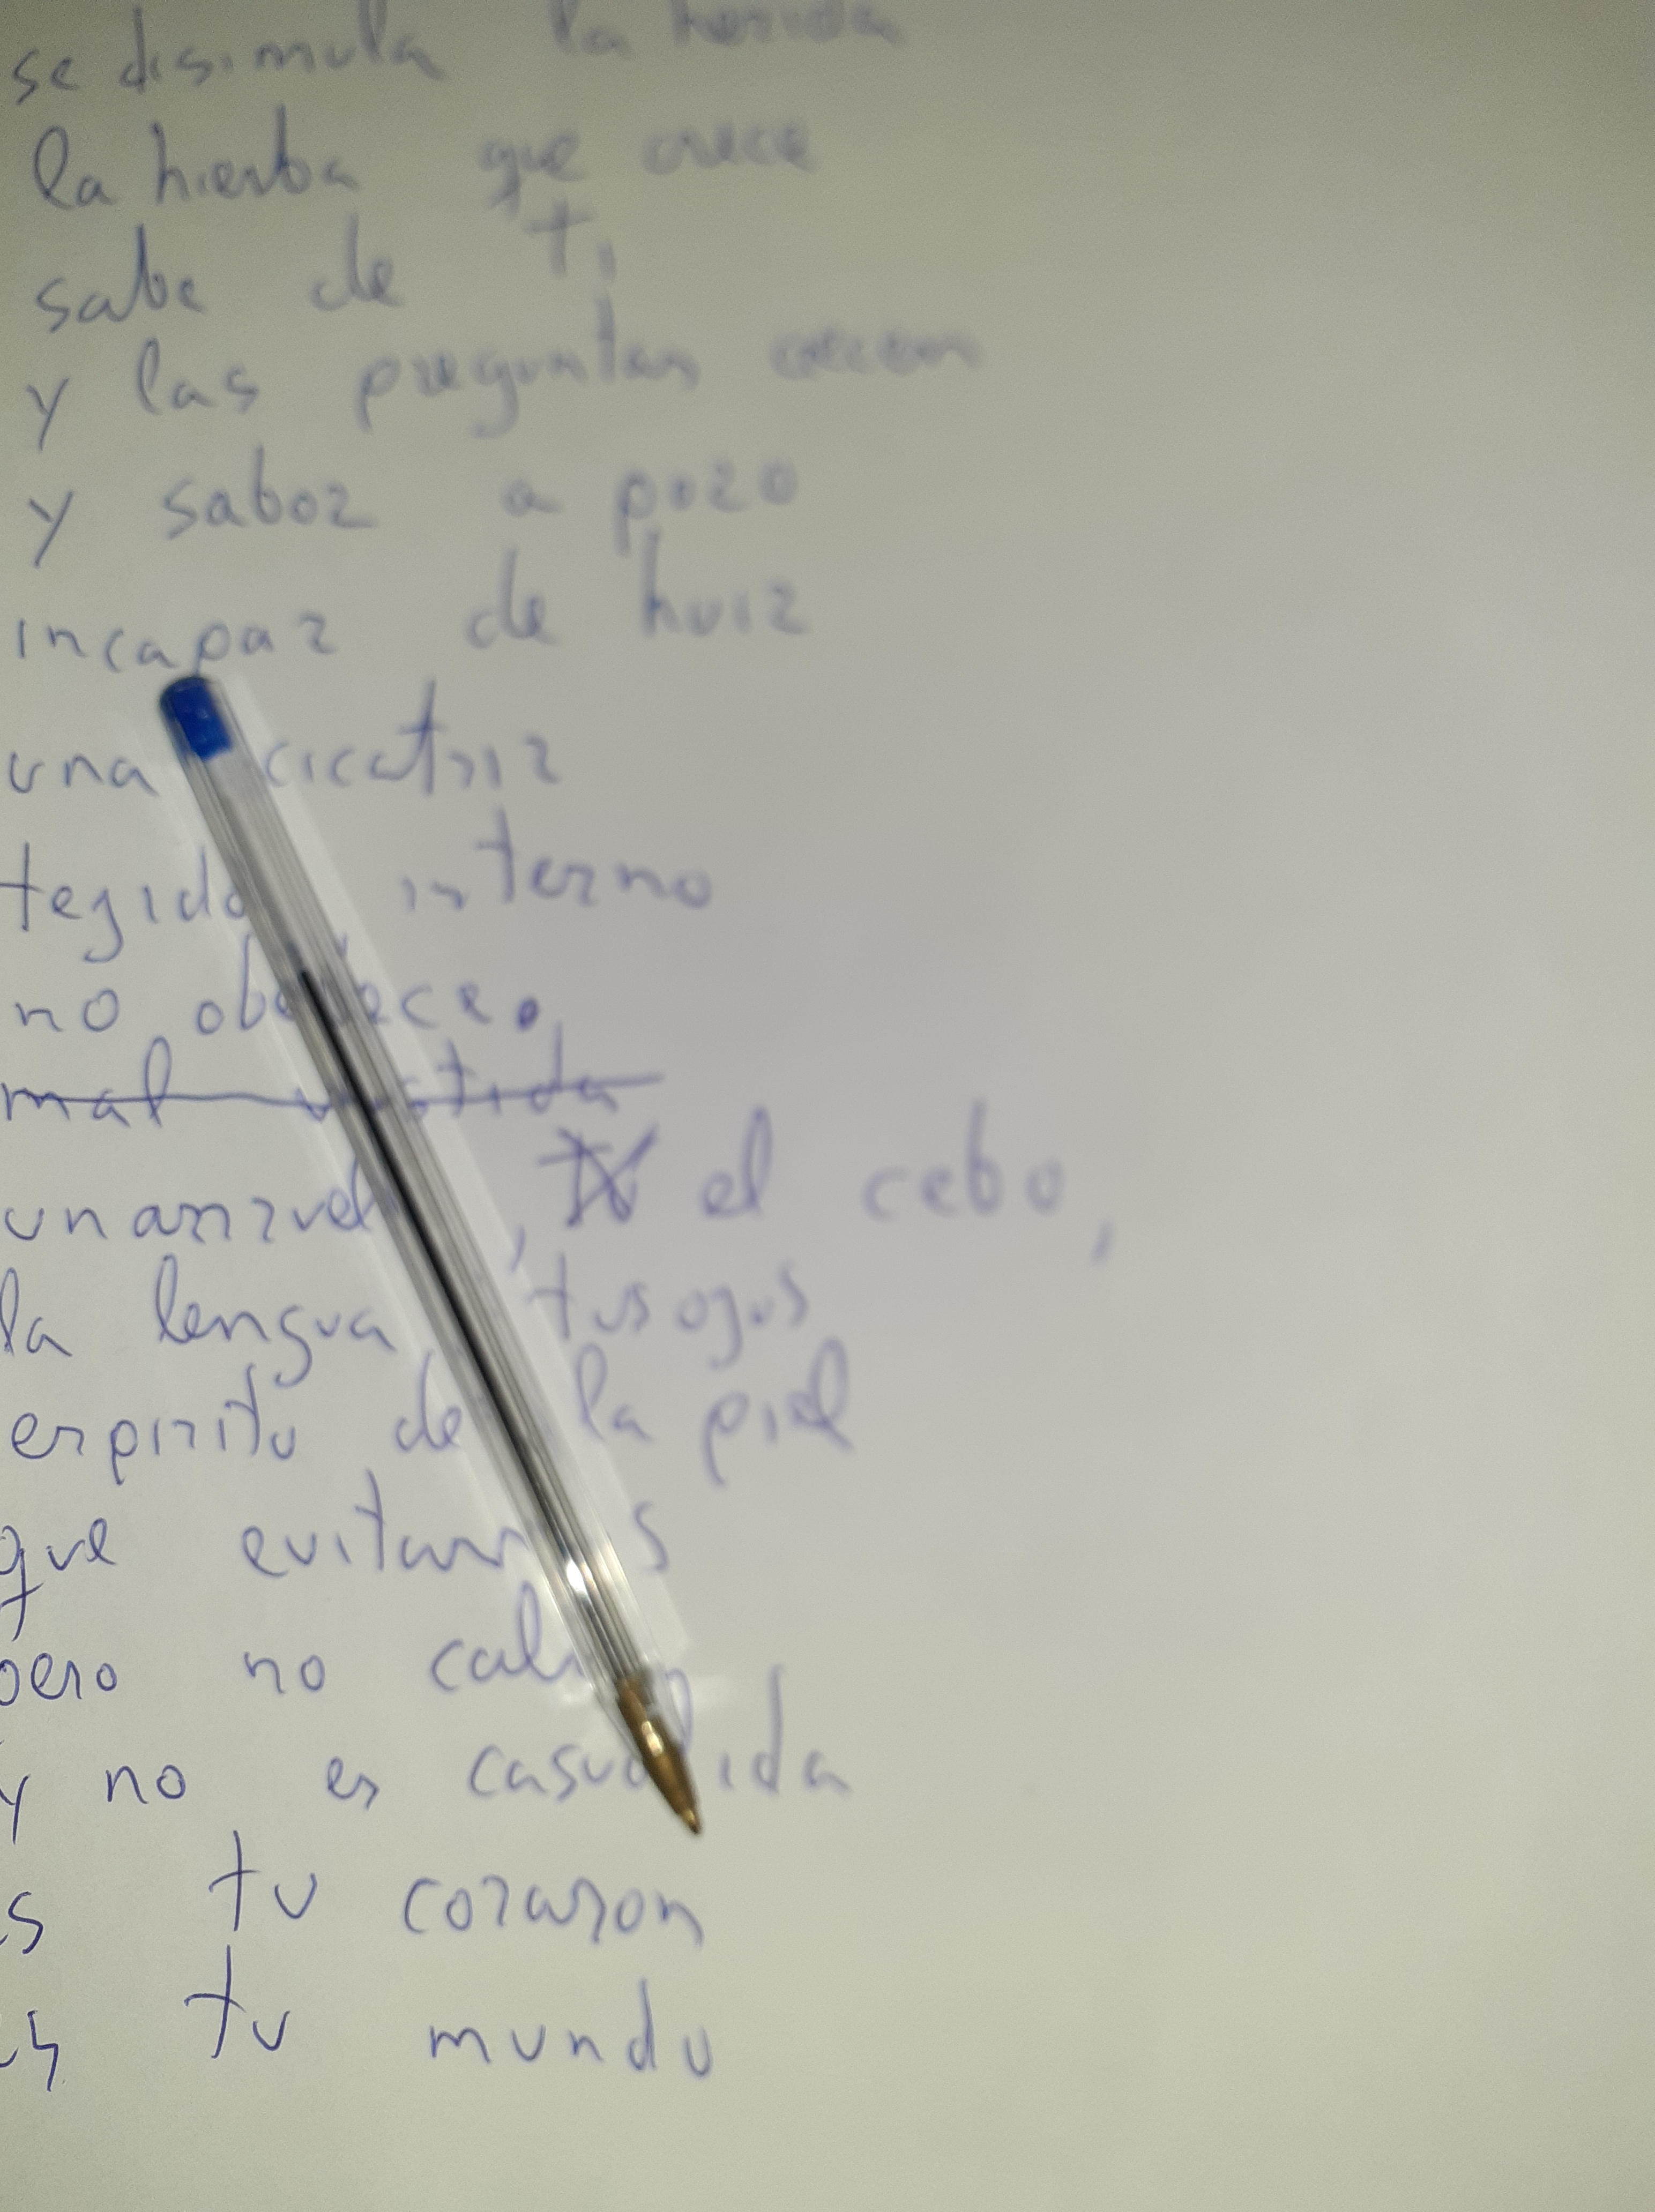 se disimula la herida
la hierba que crece
sabe de ti
y las preguntas crecen
y sabor a pozo
incapaz de huir
una cicatriz
tegido interno
no obedece.
mal vestida
un anzuelo, el cebo,
la lengua, tus ojos
espiritu de la piel
que evitamos
pero no
y no es casualida
es tu corazon
es tu mundo